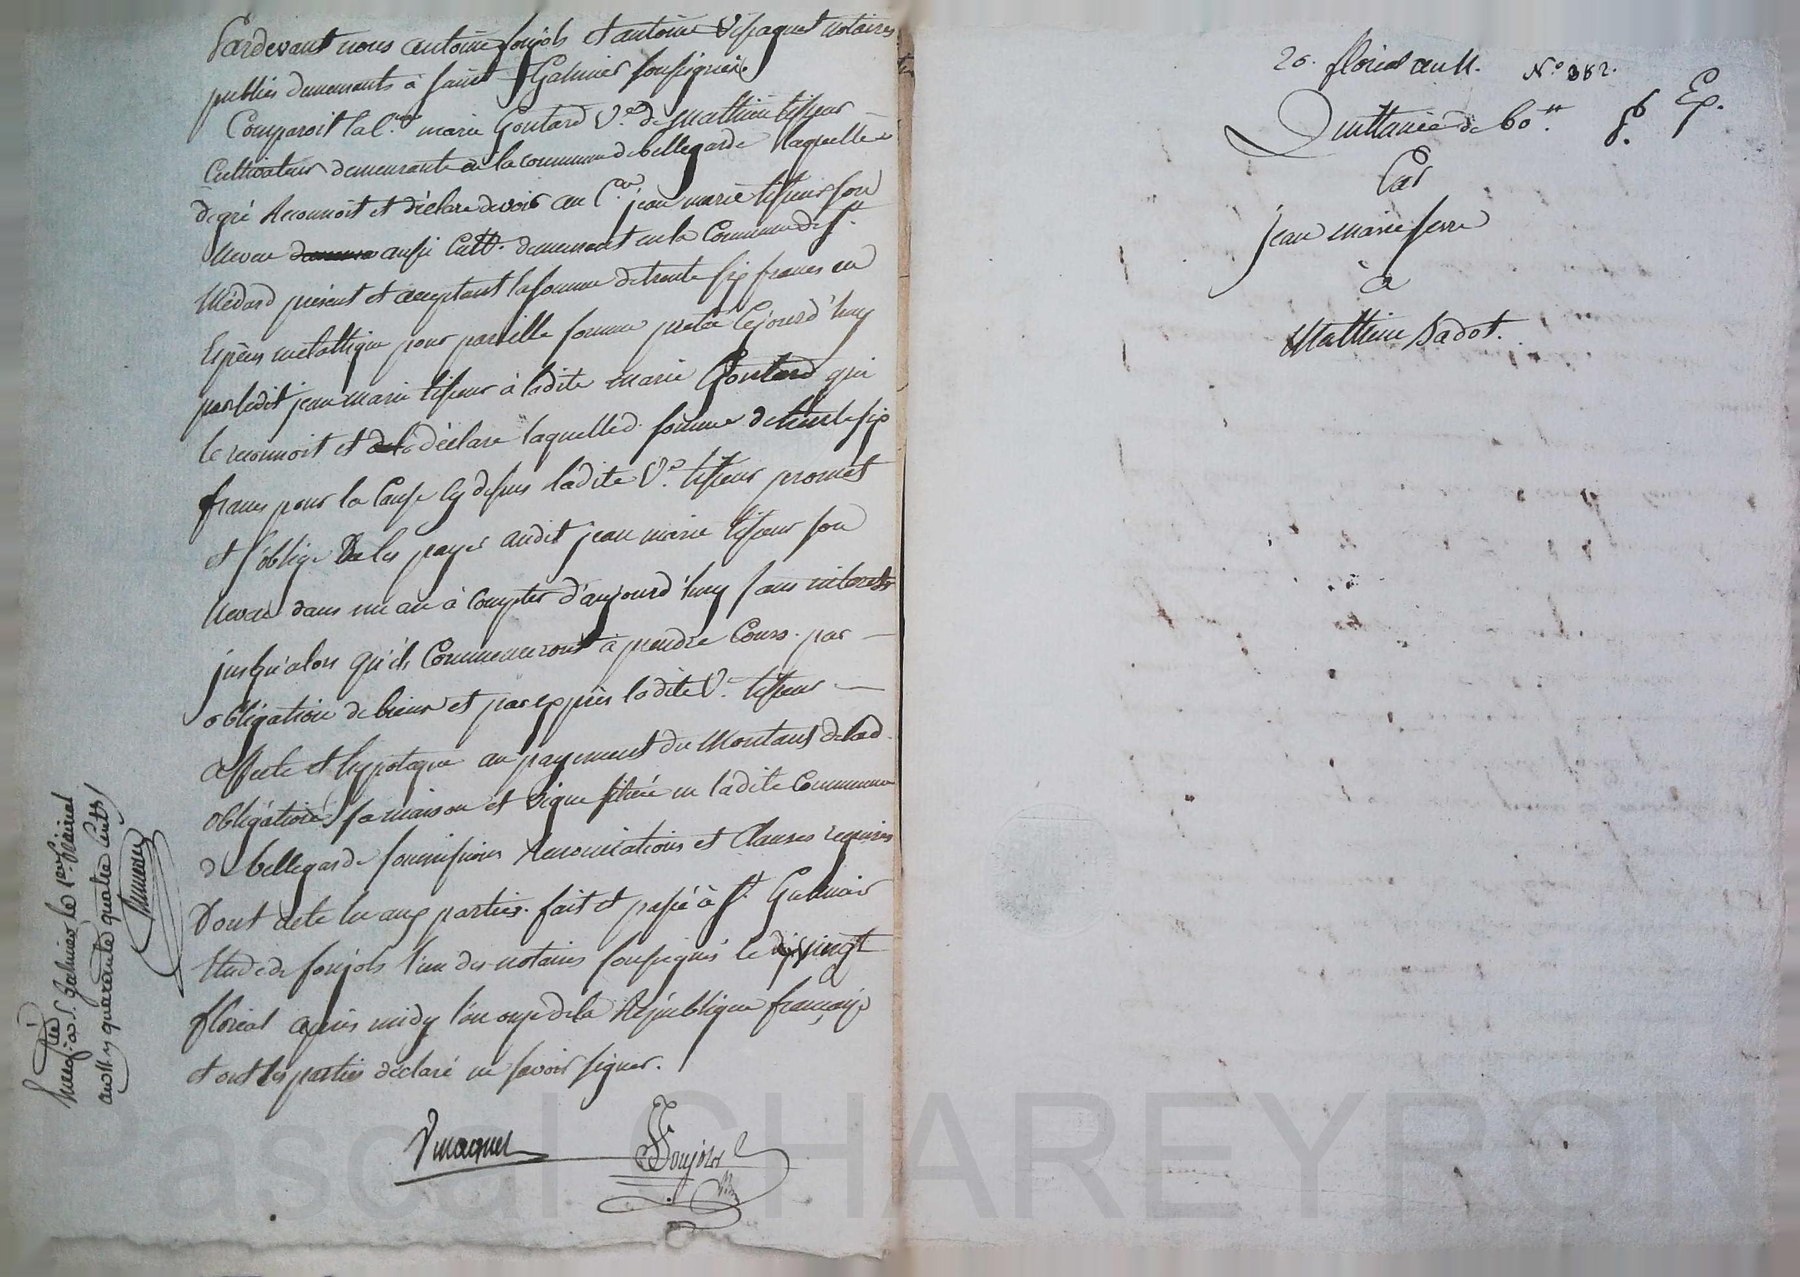 Pardevant nous antoine foujols et antoine notaires
publics demeurants à saint Galmier soussignés.
Comparoit la C.ne marie Goutard V.e de Mathieu tisseur
Cultivateur demeurante en la commune de bellegarde laquelle
de gré Reconnoit et déclare devoir au C.en jean marie tisseur son
Neveu aussi Cult. demeurant en la Commune de S.t
Médard présent et acceptant la somme de trente six francs en
Espèces metallique pour pareille somme pretée cejourd'huy
par ledit jean marie tisseur à ladite marie Goutard qui
le reconnoit et déclare laquelle d. somme de trente six
francs pour la Cause cy dessus ladite V.e tisseur promet
et s'oblige De les payer audit jean marie tisseur son
Neveu dans un an à Compter d'aujourd'huy sans interets
jusqu'alors qu'ils Commenceront à prendre Cours. par
obligation de biens et par exprès ladite V.e tisseur
affecte et hypoteque au payement du Montant de lad.
obligation sa maison et vigne située en ladite Commune
de bellegarde soumissions Renonciations et Clauses requises
Dont acte lu aux parties. fait et passé à S.t Galmier
Etude de foujols l'un des notaires soussignés le vingt
floréal après midy l'an onze de la République française
et ont les parties déclaré ne savoir signer.
Foujols
à S.t Galmier le 1.er prairial
an 11 quarante quatre cent.
20. floréal an 11. N.o 382.
Quittance de 60.tt
Par
jean marie serre
à
Mathieu Badot.
Pascal CHAREYRON